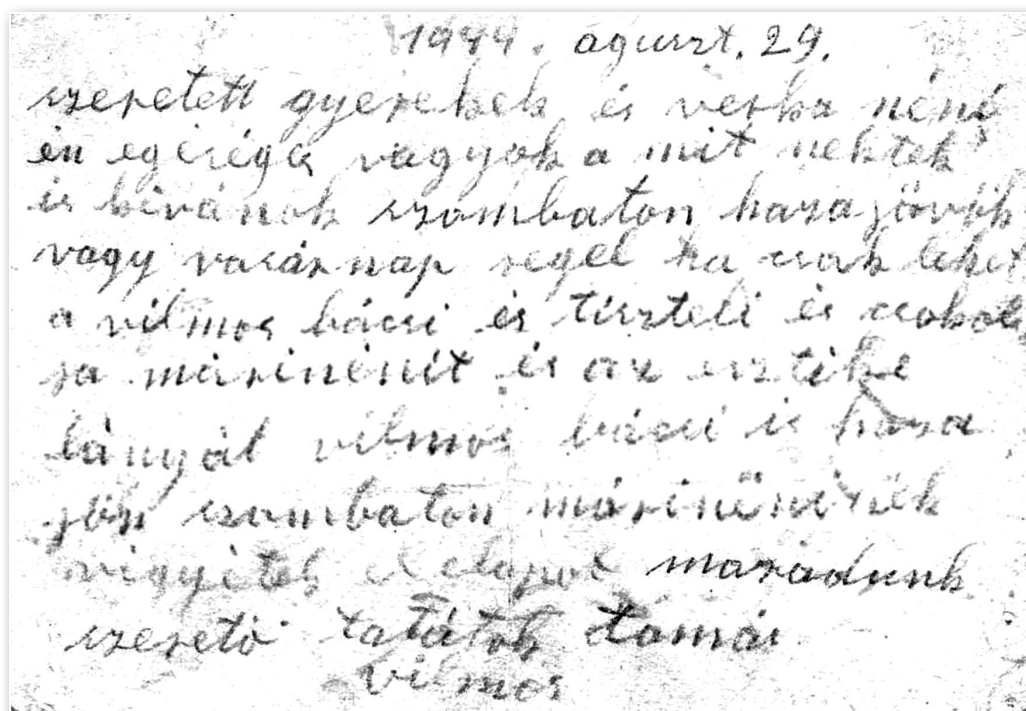 1944. águszt. 29.
szeretett gyerekek és verka néni
én egéséges vagyok a mit nektek
is kivánok szombaton haza jövök
vagy vasárnap regel ha csak lehet
a vilmos bácsi is tiszteli és csokol
ja márinénit és az esztike
lányát vilmos bácsi is haza
jön szombaton márinéninék
vigyétek el maradunk
szerető tatátok Tamás
vilmos